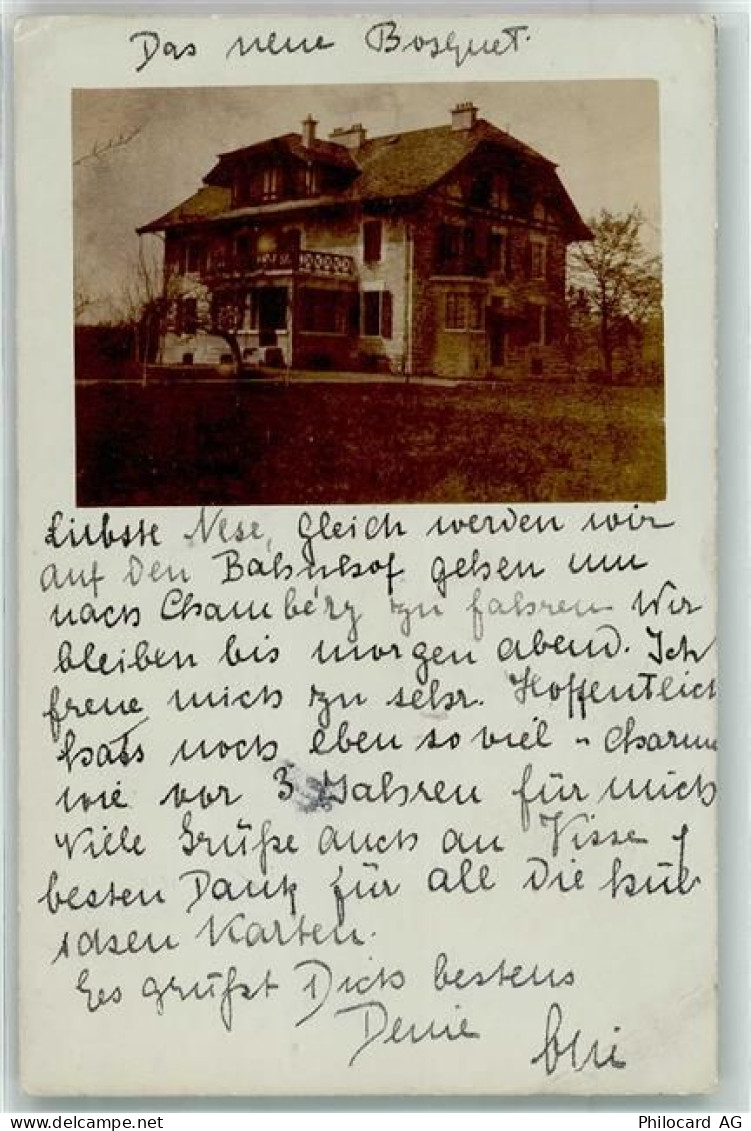 Das neue Bosquet.
Liebste Nese, gleich werden wir
auf den Bahnhof gehen um
nach Chambéry zu fahren Wir
bleiben bis morgen abend. Ich
freue mich zu sehr. Hoffentlich
hats noch eben so viel "Charme
wie vor 3 Jahren für mich
Viele Grüße auch an Visse &
besten Dank für all die hüb
schen Karten.
Es grüßt Dich bestens
Deine
166914593
Philocard AG